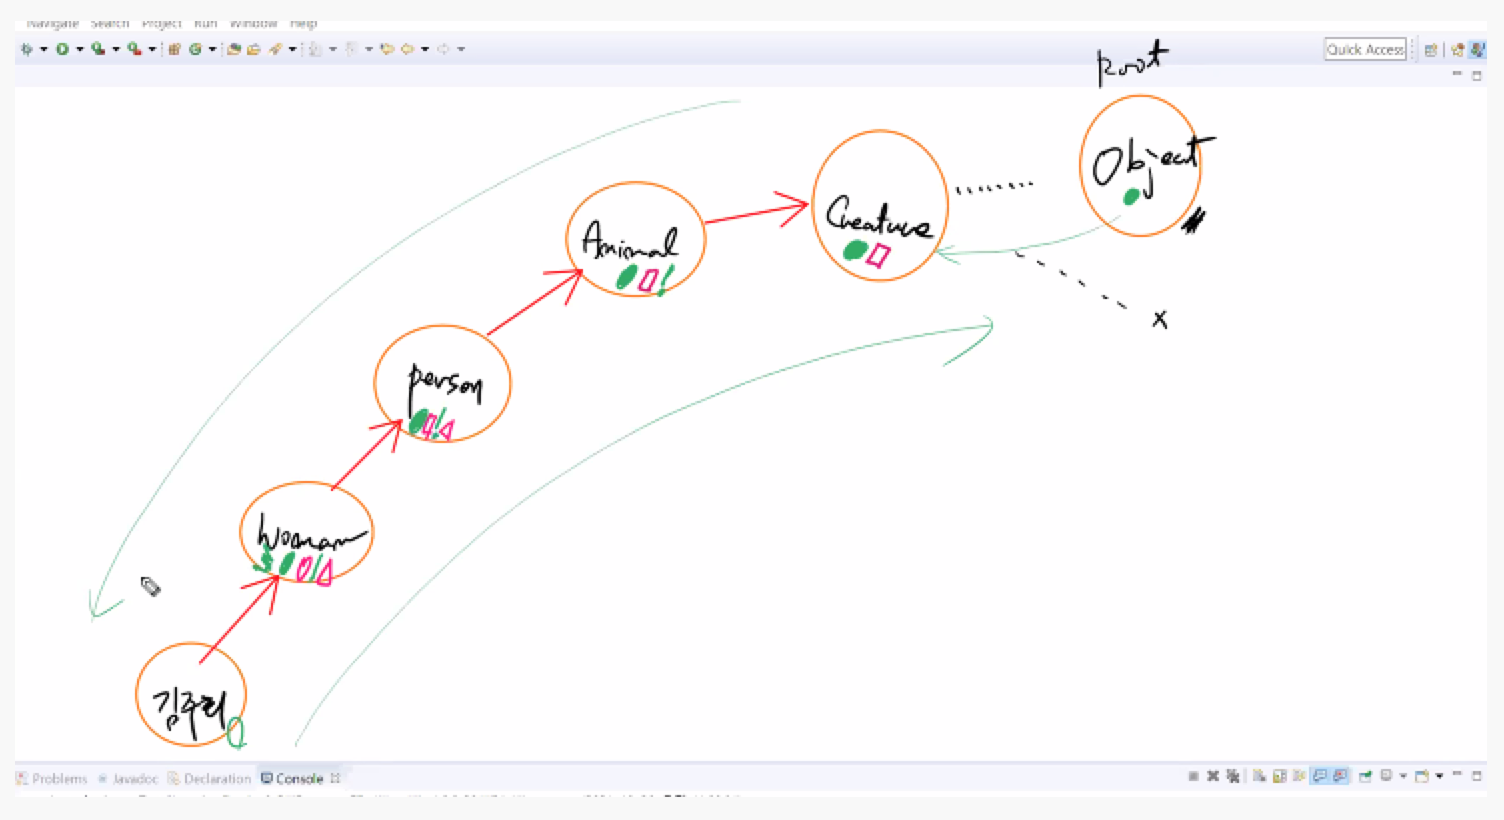 Navigate Search Project Run Window Help
Quick Access
Root
Object
Creature
Animal
person
Woman
김주리
x
Problems Javadoc Declaration Console